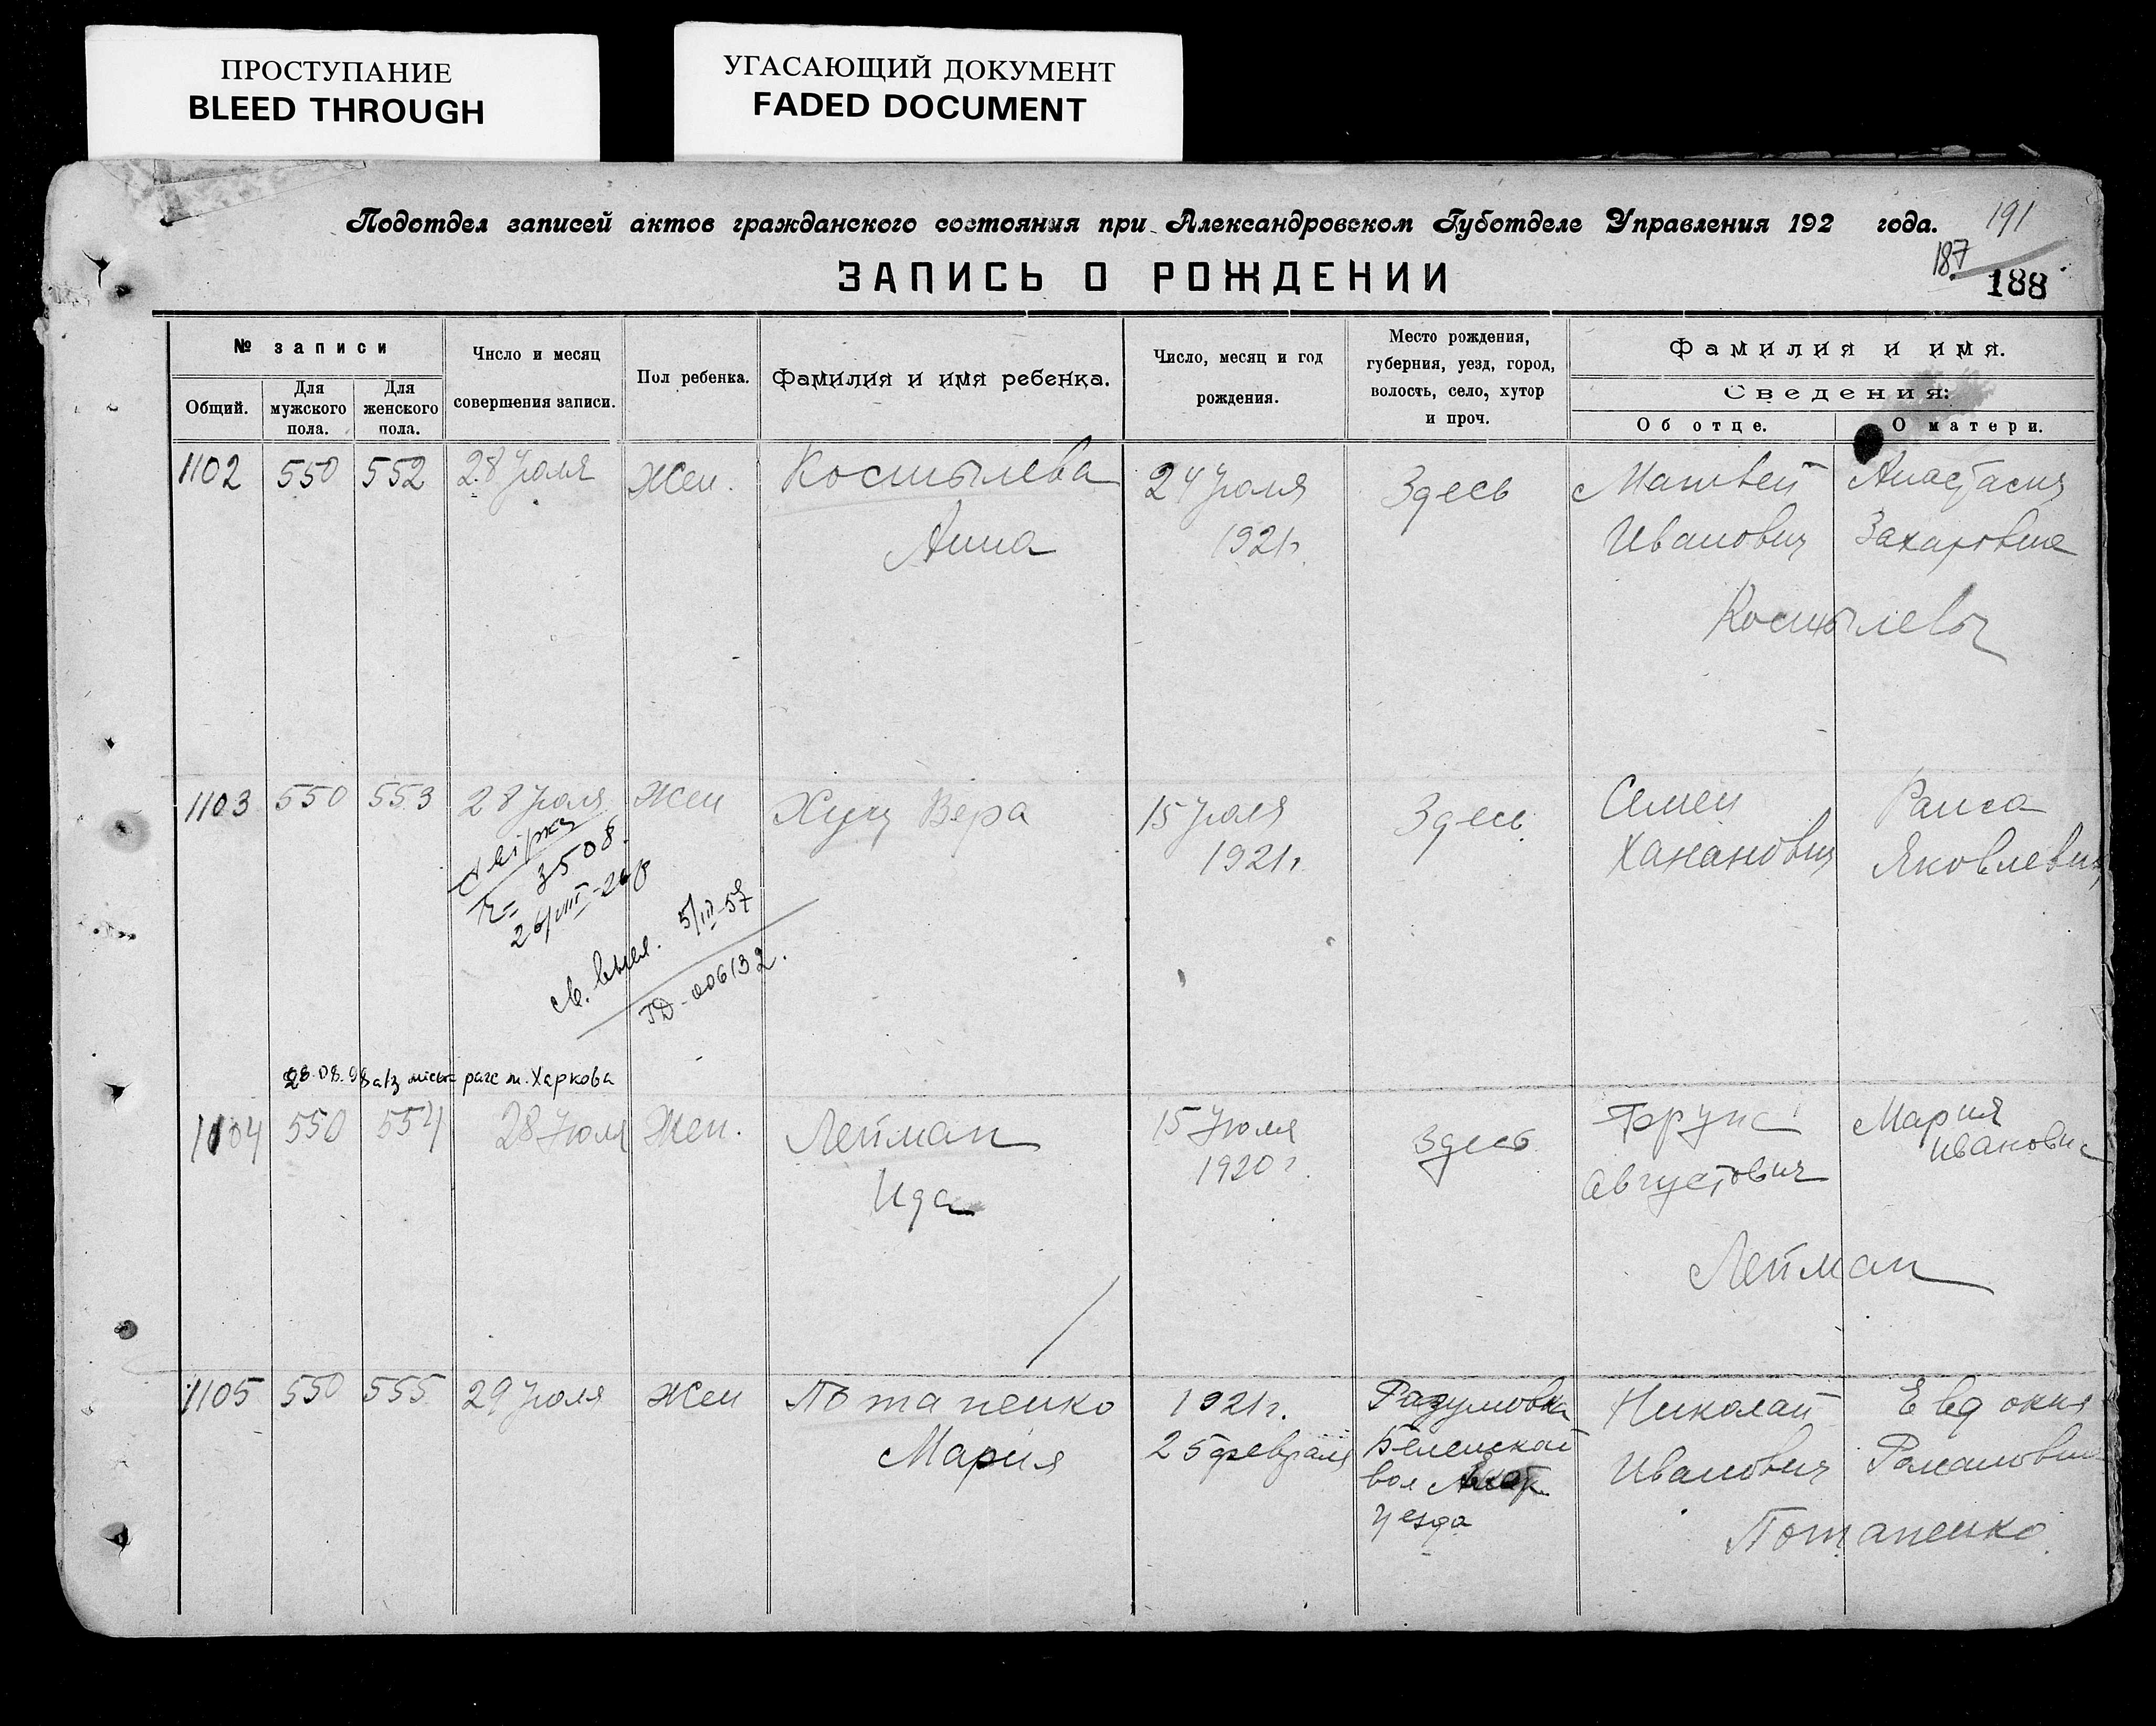 ПРОСТУПАНИЕ
BLEED THROUGH
УГАСАЮЩИЙ ДОКУМЕНТ
FADED DOCUMENT
Подотдел записей актов гражданского состояния при Александровском Губотделе Управления 192 года.
191
187
188
ЗАПИСЬ О РОЖДЕНИИ
№ записи
Общий.
Для мужского пола.
Для женского пола.
Число и месяц совершения записи.
Пол ребенка.
Фамилия и имя ребенка.
Число, месяц и год рождения.
Место рождения, губерния, уезд, город, волость, село, хутор и проч.
Фамилия и имя.
Сведения:
Об отце.
О матери.
1102 550 552 28 Июля Жен. Костылева 24 Июля Здесь Матвей Анастасия
Анна 1921г. Иванович Захаровна
Костылевы
1103 550 553 28 Июля Жен Хуц Вера 15 Июля Здесь Семен Раиса
1921г. Хананович Яковлевна
3508.
26/VIII-26р
св. выся. 5/III-57
ЗД-006132.
28.08.98 а/з міськ рагс м. Харкова
1104 550 554 28 Июля Жен. Лейман 15 Июля Здесь Фрунс Мария
Ида 1920г. Августович Ивановна
Лейман
1105 550 555 29 Июля Жен Потапенко 1921г. Разумовка Николай Евдокия
Мария 25 февраля Беленской Иванович Романовна
вол
уезда
Потапенко